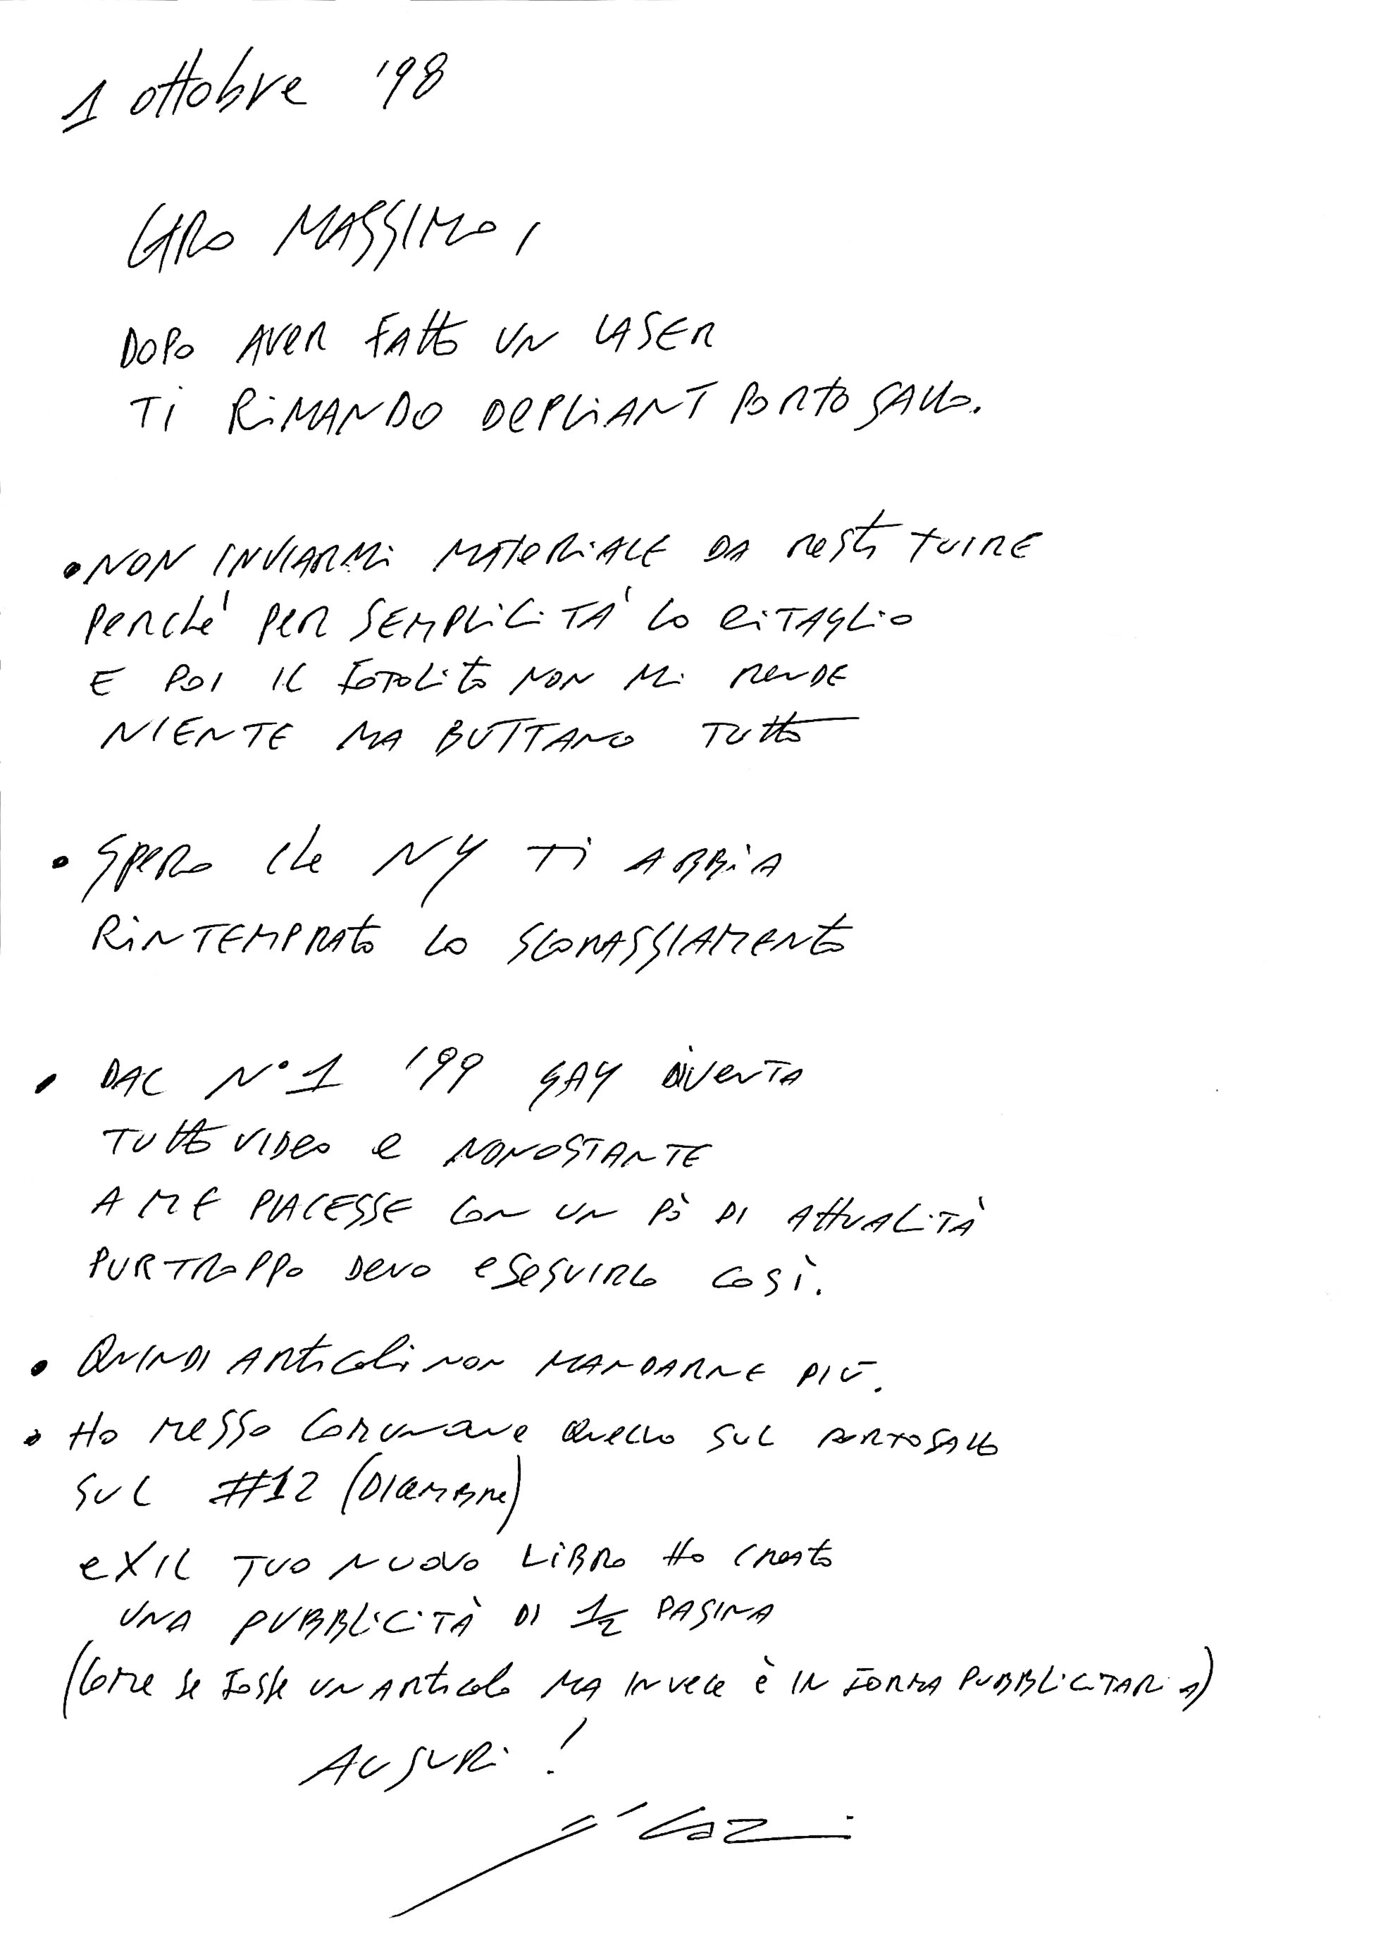 1 ottobre '98
CARO MASSIMO,
DOPO AVER FATTO UN LASER
TI RIMANDO DEPLIANT PORTOGALLO.
• NON INVIARMI MATERIALE DA RESTITUIRE
PERCHÉ PER SEMPLICITÀ LO RITAGLIO
E POI IL FOTOLITO NON MI RENDE
NIENTE MA BUTTANO TUTTO
• SPERO CHE NY TI ABBIA
RINTEMPRATO LO SCOMASSIAMENTO
• DAL N°1 '99 GAY DIVENTA
TUTTO VIDEO E NONOSTANTE
A ME PIACESSE CON UN PÒ DI ATTUALITÀ
PURTROPPO DEVO ESEGUIRLO COSÌ.
• QUINDI ARTICOLI NON MANDARNE PIÙ.
• HO MESSO COMUNQUE QUELLO SUL PORTOGALLO
SUL #12 (DICEMBRE)
E X IL TUO NUOVO LIBRO HO CREATO
UNA PUBBLICITÀ DI 1/2 PAGINA
(COME SE FOSSE UN ARTICOLO MA INVECE È IN FORMA PUBBLICITARIA)
AUGURI!